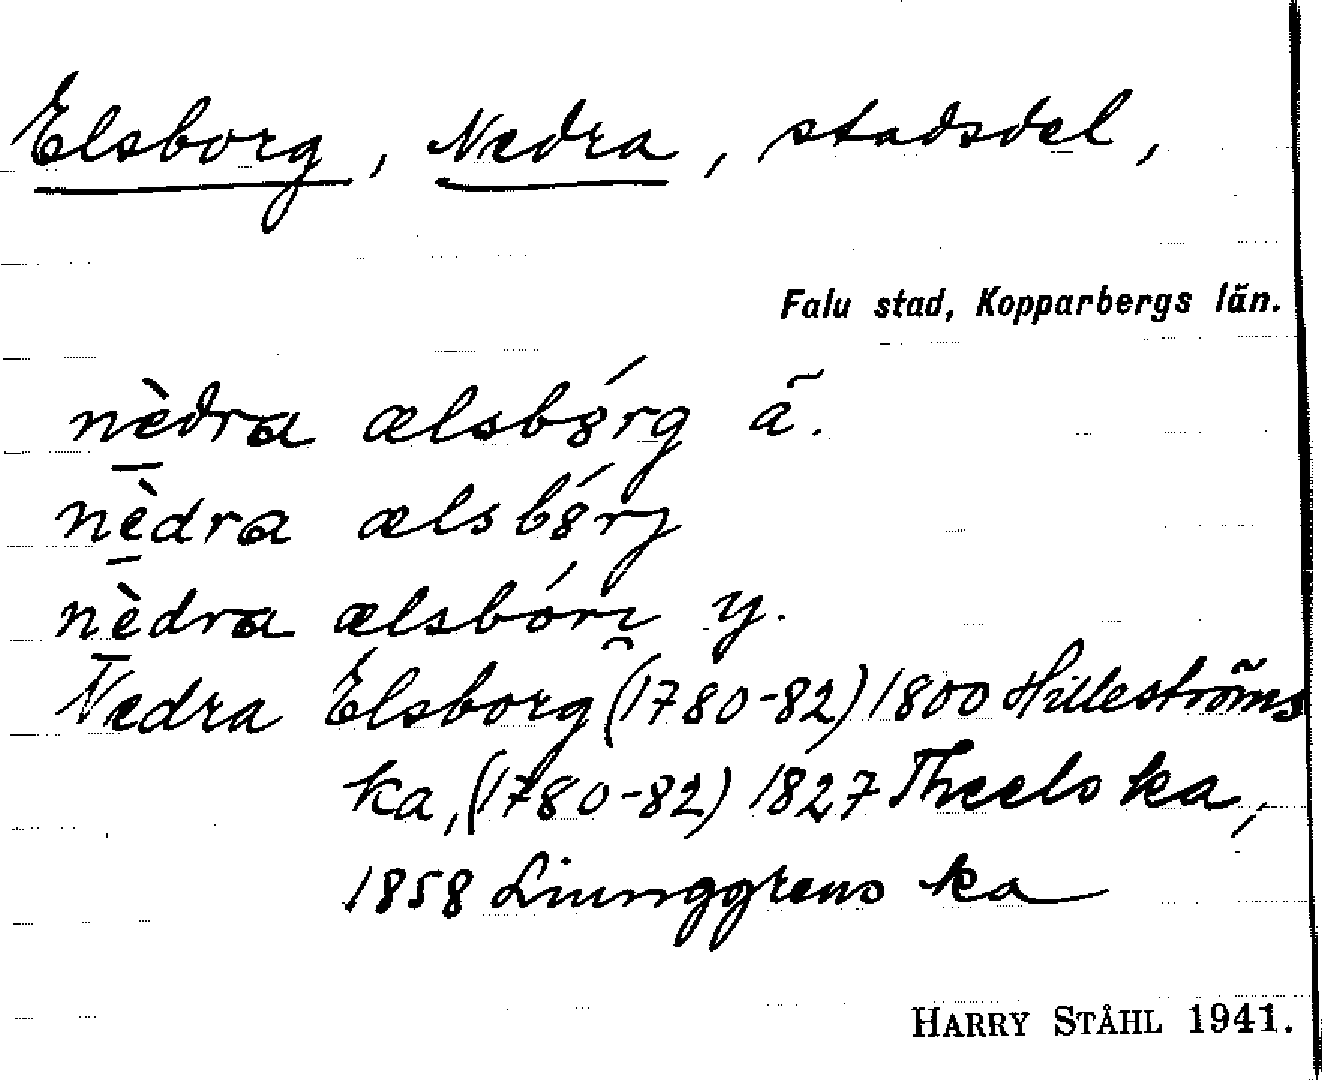 Elsborg, Nedra, stadsdel,
Falu stad, Kopparbergs län.
nèdra ælsbórg ä.
nèdra ælsbórj
nèdra ælsbóri̯ y.
Nedra Elsborg (1780-82) 1800 Hilleströms
ka, (1780-82) 1827 Theels ka,
1858 Liunggrens ka
HARRY STÅHL 1941.